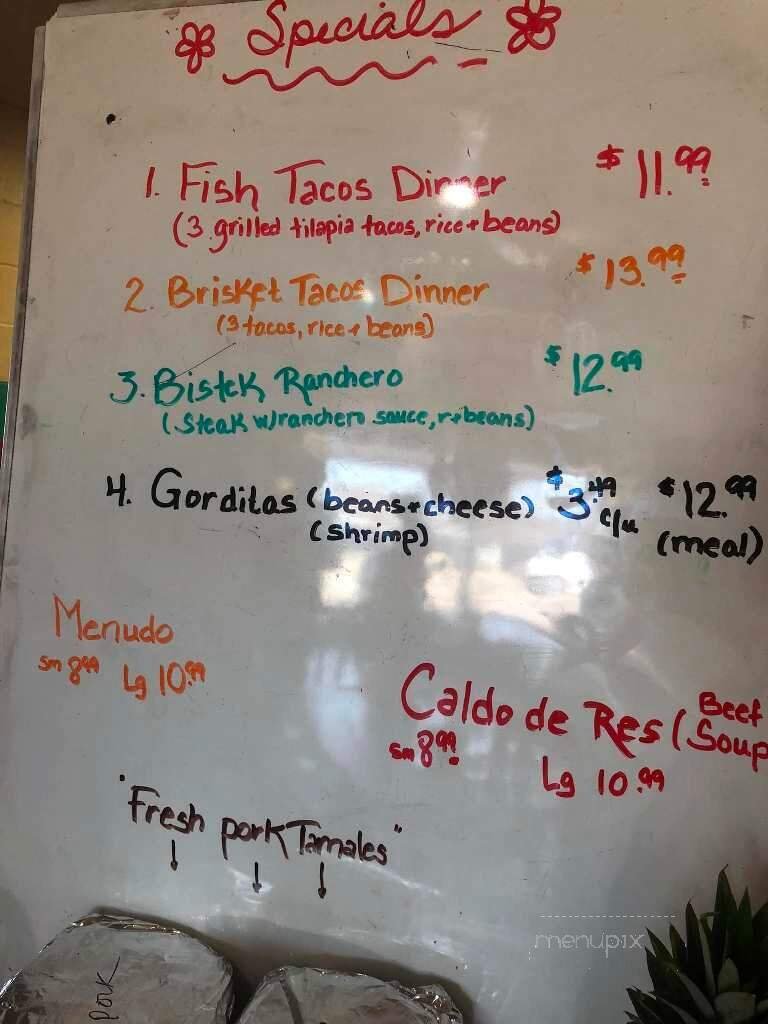 Specials
1. Fish Tacos Dinner $11.99
(3 grilled tilapia tacos, rice + beans)
2. Brisket Tacos Dinner $13.99
(3 tacos, rice + beans)
3. Bistek Ranchero $12.99
(Steak w/ranchero sauce, r+beans)
4. Gorditas (beans+cheese) $3.49 c/u $12.99
(shrimp) (meal)
Menudo
sm 8.99 Lg 10.99
Caldo de Res (Beef Soup
sm 8.99 Lg 10.99
"Fresh pork Tamales"
pork
menupix